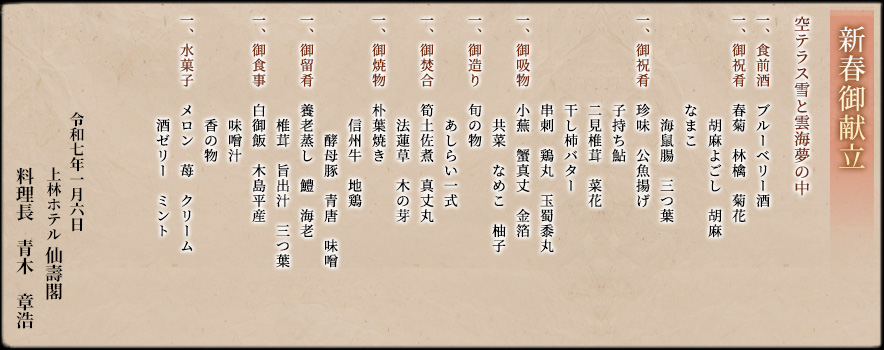 新春御献立
空テラス雪と雲海夢の中
一、食前酒　ブルーベリー酒
一、御祝肴　春菊　林檎　菊花
胡麻よごし　胡麻
なまこ
海鼠腸　三つ葉
一、御祝肴　珍味　公魚揚げ
子持ち鮎
二見椎茸　菜花
干し柿バター
串刺　鶏丸　玉蜀黍丸
一、御吸物　小蕪　蟹真丈　金箔
共菜　なめこ　柚子
一、御造り　旬の物
あしらい一式
一、御焚合　筍土佐煮　真丈丸
法蓮草　木の芽
一、御焼物　朴葉焼き
信州牛　地鶏
酵母豚　青唐　味噌
一、御留肴　養老蒸し　鱧　海老
椎茸　旨出汁　三つ葉
一、御食事　白御飯　木島平産
味噌汁
香の物
一、水菓子　メロン　苺　クリーム
酒ゼリー　ミント
令和七年一月六日
上林ホテル仙壽閣
料理長　青木　章浩